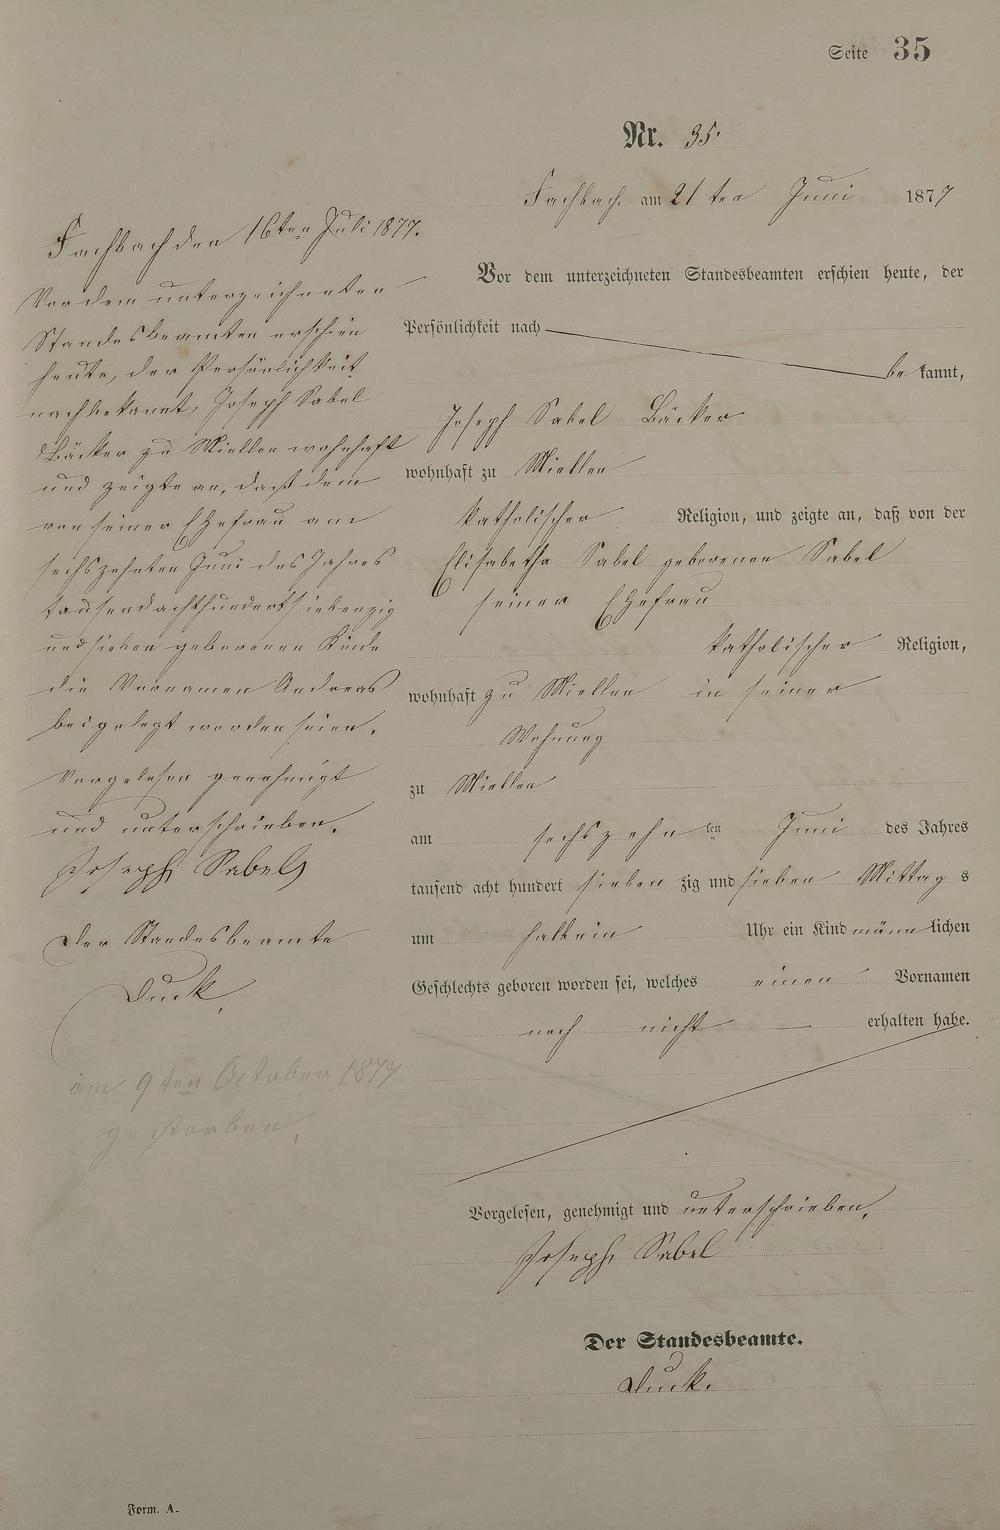 Seite 35
Nr. 35.
Fachbach am 21 ten Juni 1877
Vor dem unterzeichneten Standesbeamten erschien heute, der
Persönlichkeit nach
be kannt,
Joseph Sabel Bäcker
wohnhaft zu Miellen
katholischer Religion, und zeigte an, daß von der
Elisabetha Sabel geborenen Sabel
seiner Ehefrau
katholischer Religion,
wohnhaft zu Miellen in seiner
Wohnung
zu Miellen
am sechszehn ten Juni des Jahres
tausend acht hundert sieben zig und sieben Mittag s
um halbein Uhr ein Kind männ lichen
Geschlechts geboren worden sei, welches einen Vornamen
noch nicht — erhalten habe.
Vorgelesen, genehmigt und unterschrieben,
Joseph Sabel
Der Standesbeamte.
Duck.
Fachbach den 16ten Juli 1877.
Vor dem unterzeichneten
Standesbeamten erschien
heute, der Persönlichkeit
nach bekannt, Joseph Sabel
Bäcker zu Miellen wohnhaft
und zeigte an, daß dem
von seiner Ehefrau am
sechszehnten Juni des Jahres
tausendachthundertsiebenzig
und sieben geborenen Kinde
die Vornamen Andreas
beigelegt worden seien.
Vorgelesen genehmigt
und unterschrieben.
Joseph Sabel
Der Standesbeamte
Duck,
am 9ten October 1877
gestorben,
Form. A.